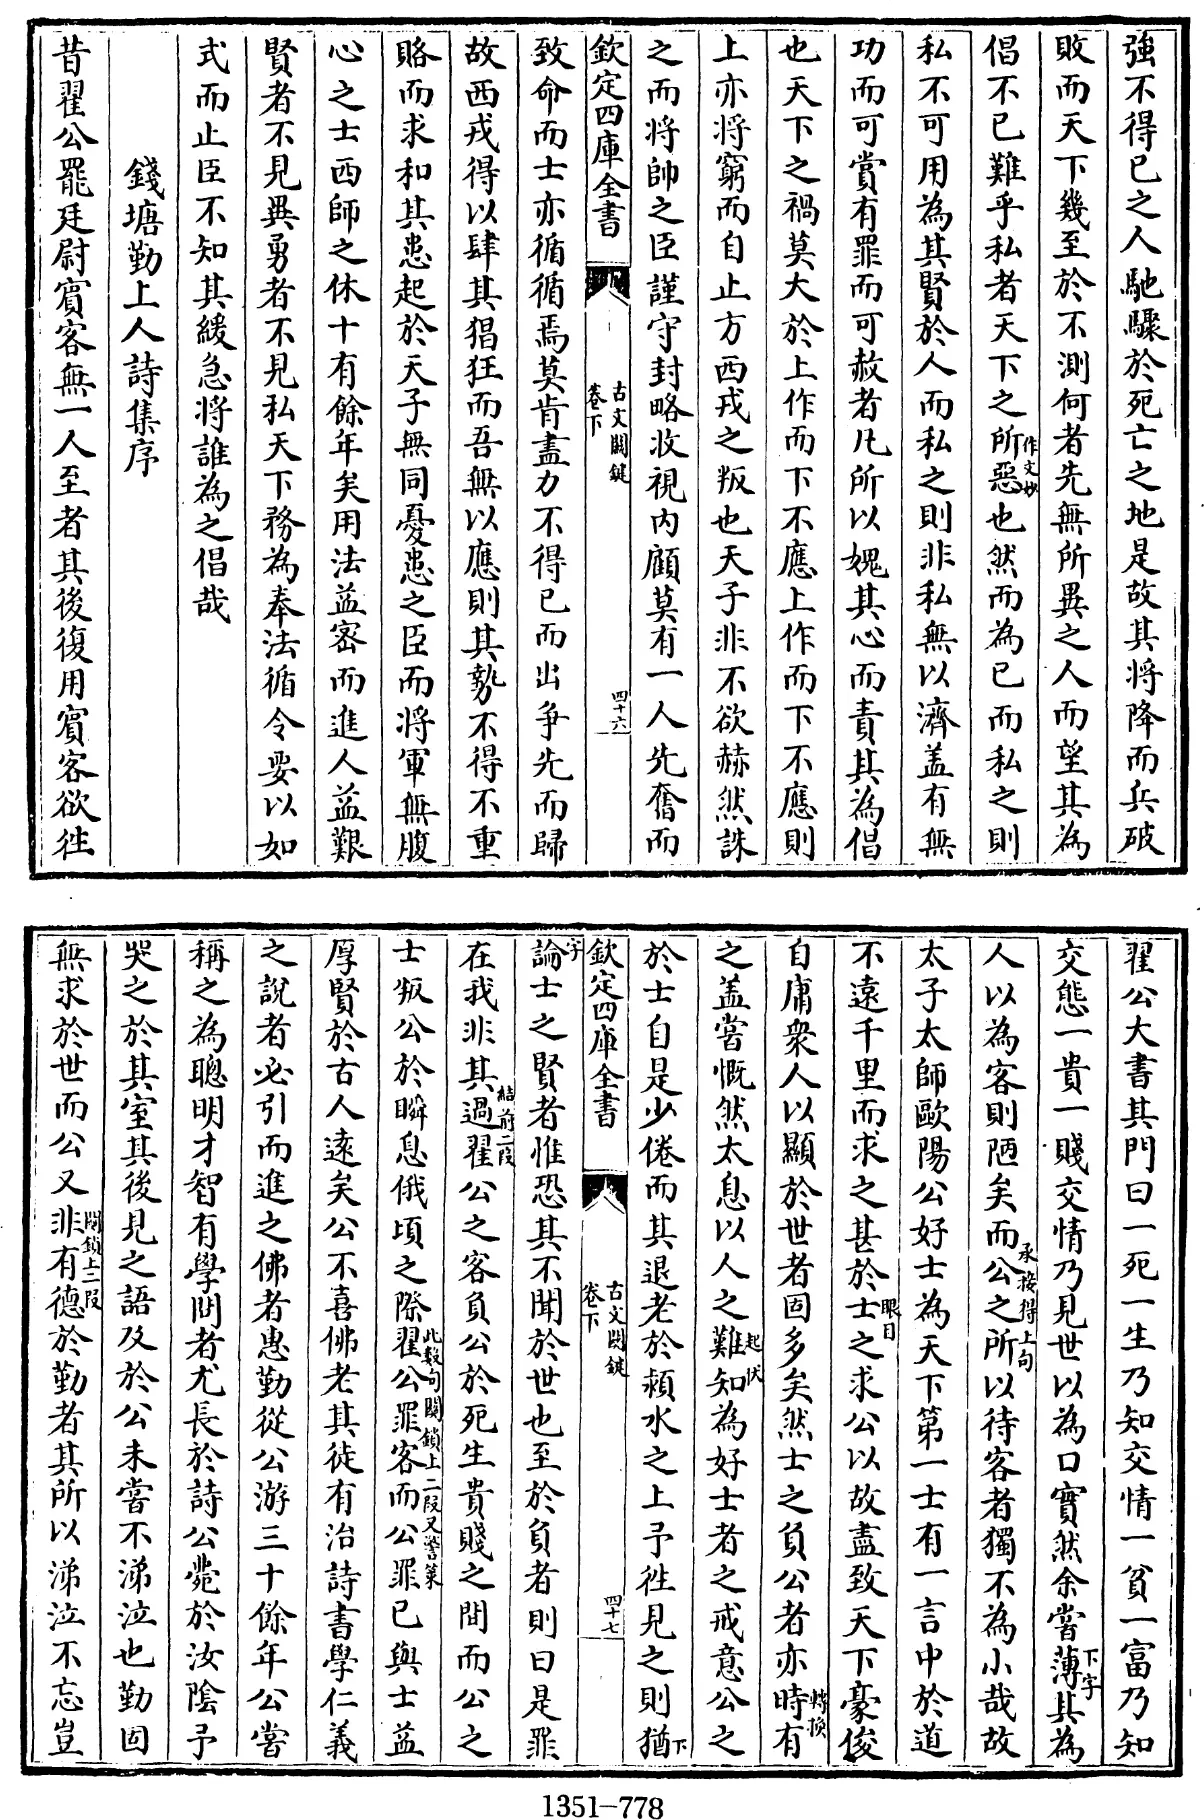 強不得已之人馳驟於死亡之地是故其將降而兵破
敗而天下幾至於不測何者先無所異之人而望其為
倡不已難乎私者天下之所惡作文妙也然而為已而私之則
私不可用為其賢於人而私之則非私無以濟盖有無
功而可賞有罪而可赦者凡所以媿其心而責其為倡
也天下之禍莫大於上作而下不應上作而下不應則
上亦將窮而自止方西戎之叛也天子非不欲赫然誅
之而將帥之臣謹守封略收視内顧莫有一人先奮而
欽定四庫全書
古文關鍵
卷下
四十六
致命而士亦循循焉莫肯盡力不得已而出爭先而歸
故西戎得以肆其猖狂而吾無以應則其勢不得不重
賂而求和其患起於天子無同憂患之臣而將軍無腹
心之士西師之休十有餘年矣用法益宻而進人益艱
賢者不見異勇者不見私天下務為奉法循令要以如
式而止臣不知其緩急將誰為之倡哉
錢塘勤上人詩集序
昔翟公罷廷尉賓客無一人至者其後復用賓客欲徃
翟公大書其門曰一死一生乃知交情一貧一富乃知
交態一貴一賤交情乃見世以為口實然余嘗薄下字其為
人以為客則陋矣而公之所承接得上句以待客者獨不為小哉故
太子太師歐陽公好士為天下第一士有一言中於道
不遠千里而求之甚於士眼目之求公以故盡致天下豪俊
自庸衆人以顯於世者固多矣然士之負公者亦時轉換有
之盖嘗慨然太息以人之難知起伏為好士者之戒意公之
於士自是少倦而其退老於潁水之上予徃見之則猶下
欽定四庫全書
古文關鍵
卷下
四十七
字論士之賢者惟恐其不聞於世也至於負者則曰是罪
在我非其過結前二段翟公之客負公於死生貴賤之間而公之
士叛公於瞬息俄頃之際翟公罪客而公罪已與士益此數句關鎖上二段又警策
厚賢於古人遠矣公不喜佛老其徒有治詩書學仁義
之說者必引而進之佛者惠勤從公游三十餘年公嘗
稱之為聰明才智有學問者尤長於詩公薨於汝陰予
哭之於其室其後見之語及於公未嘗不涕泣也勤固
無求於世而公又非關鎖上二段有德於勤者其所以涕泣不忘豈
1351-778